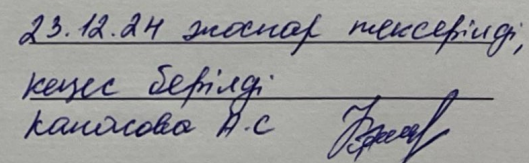 23.12.24 жоспар тексерілді,
кеңес берілді
Канасова А.С